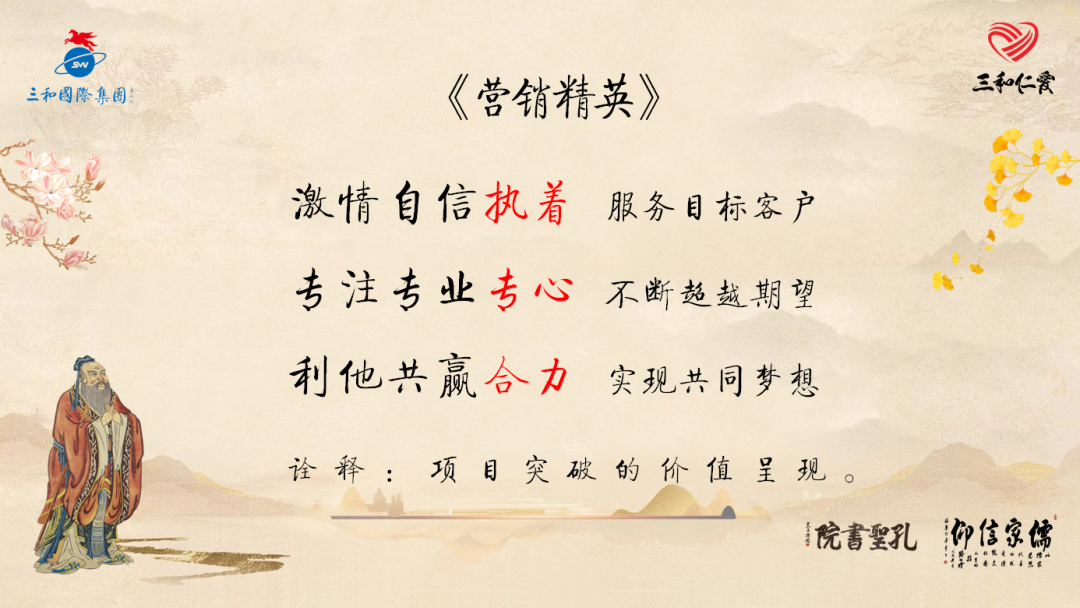 三和國際集團
三和仁爱
《营销精英》
激情自信执着 服务目标客户
专注专业专心 不断超越期望
利他共赢合力 实现共同梦想
诠释：项目突破的价值呈现。
院書聖孔
仰信家儒